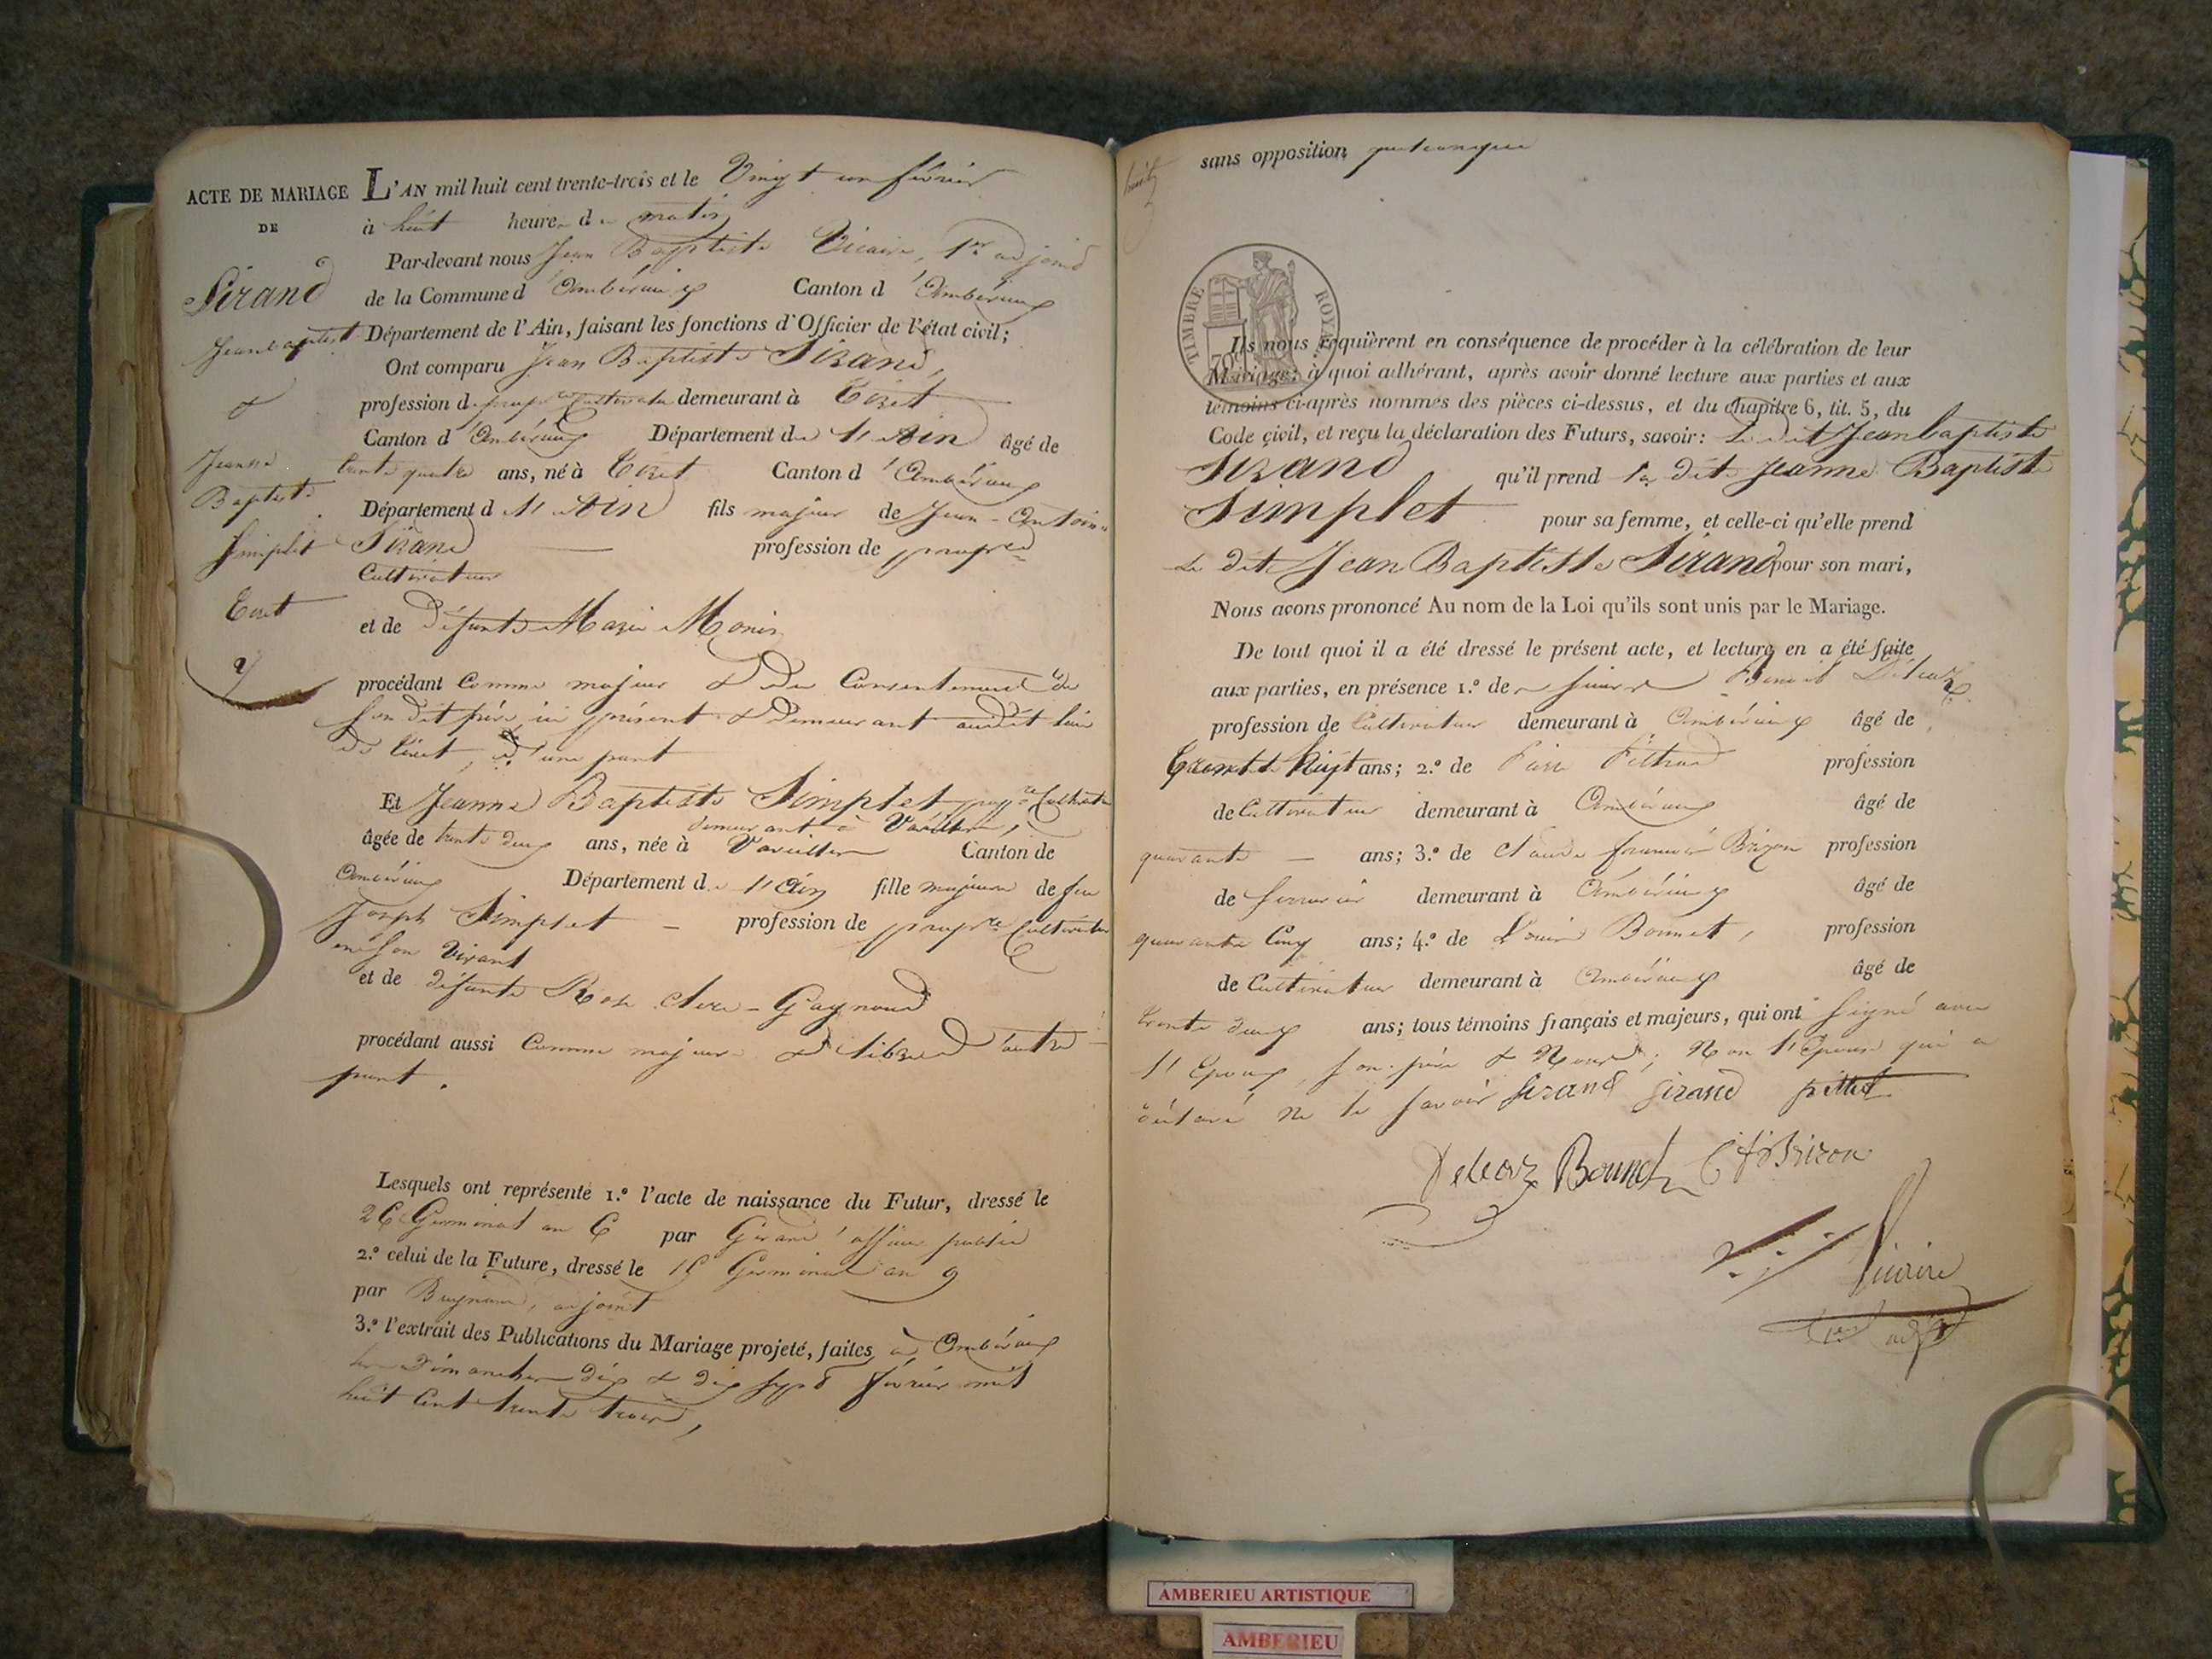 ACTE DE MARIAGE
DE
Sirand
Jean baptiste
&
Jeanne
Baptiste
Simplet
Tiret
L'AN mil huit cent trente-trois et le Vingt un février
à huit heures du matin
Par-devant nous Jean Baptiste Vicaire, 1er adjoint
de la Commune d'Ambérieux Canton d'Ambérieux
Département de l'Ain, faisant les fonctions d'Officier de l'état civil;
Ont comparu Jean Baptiste Sirand,
profession de propre Cultivateur demeurant à Tiret
Canton d'Ambérieux Département de l'Ain âgé de
trente quatre ans, né à Tiret Canton d'Ambérieux
Département de l'Ain fils majeur de Jean-Antoine
Sirand — profession de propre
Cultivateur
et de défunte Marie Monin
procédant Comme majeur & du Consentement de
son dit père ici présent & Demeurant audit lieu
de Tiret, d'une part
Et Jeanne Baptiste Simplet propre Cultivatrice
demeurant à Vareilles,
âgée de trente deux ans, née à Vareilles Canton de
Ambérieux Département de l'Ain fille majeure de feu
Joseph Simplet — profession de propre Cultivateur
en son vivant
et de défunte Rose Gaynoud
procédant aussi Comme majeure & libre d'autre
part.
Lesquels ont représenté 1.º l'acte de naissance du Futur, dressé le
Germinal an par Girand officier public
2.º celui de la Future, dressé le Germinal an 9
par adjoint
3.º l'extrait des Publications du Mariage projeté, faites à Ambérieux
les Dimanches dix & dix sept février mil
huit Cent trente trois,
sans opposition quelconque
huit
TIMBRE ROYAL
70
Ils nous requièrent en conséquence de procéder à la célébration de leur
Mariage; à quoi adhérant, après avoir donné lecture aux parties et aux
témoins ci-après nommés des pièces ci-dessus, et du chapitre 6, tit. 5, du
Code civil, et reçu la déclaration des Futurs, savoir: Le dit Jean baptiste
Sirand qu'il prend la dite Jeanne Baptiste
Simplet pour sa femme, et celle-ci qu'elle prend
Le dit Jean Baptiste Sirand pour son mari,
Nous avons prononcé Au nom de la Loi qu'ils sont unis par le Mariage.
De tout quoi il a été dressé le présent acte, et lecture en a été faite
aux parties, en présence 1.º de sieurs Benoit Deleaz
profession de Cultivateur demeurant à Ambérieux âgé de
Trente huit ans; 2.º de Pierre profession
de Cultivateur demeurant à Ambérieux âgé de
quarante — ans; 3.º de Claude Brizon profession
de serrurier demeurant à Ambérieux âgé de
quarante Cinq ans; 4.º de Louis Bonnet, profession
de Cultivateur demeurant à Ambérieux âgé de
trente deux ans; tous témoins français et majeurs, qui ont signé avec
l'Epoux, son père & Nous; Non l'Epouse qui a
déclaré ne le savoir Sirand Sirand
Deleaz Bonnet Brizon
Vicaire
1er adjt
AMBERIEU ARTISTIQUE
AMBERIEU